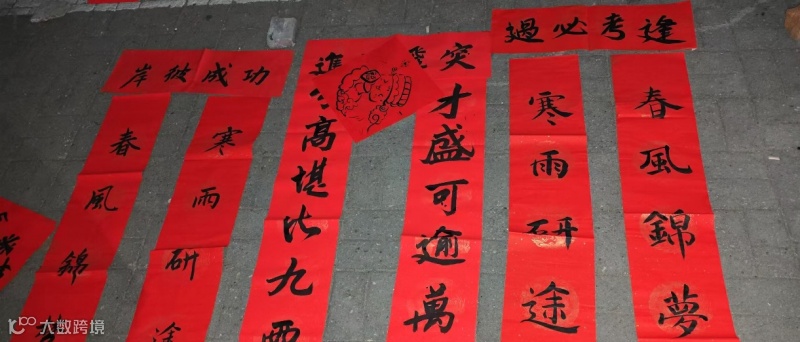 逢考必過
春風錦夢
寒雨研途
突進
才盛可逾萬
高堪比九
功成彼岸
寒雨研途
春風錦
大数跨境